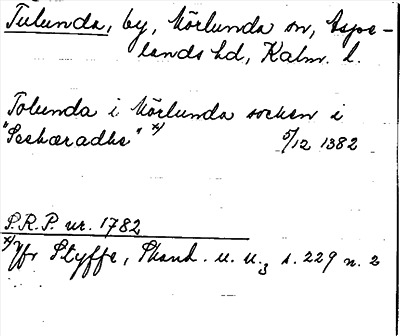 Tulunda, by, Mörlunda sn, Aspe-
lands hd, Kalm. l.
Tolunda i Mörlunda socken i
"Seehæradhe" x) 5/12 1382
S.R.P. nr. 1782
x) Jfr Styffe, Skand. u. u.3 s. 229 n. 2